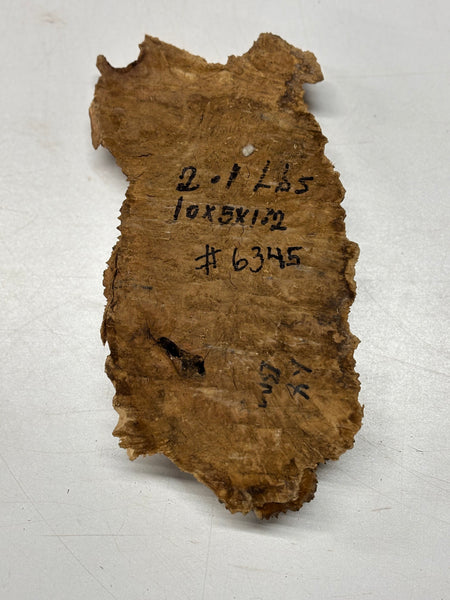 2.1 Lbs
10x5x1.2
#6345